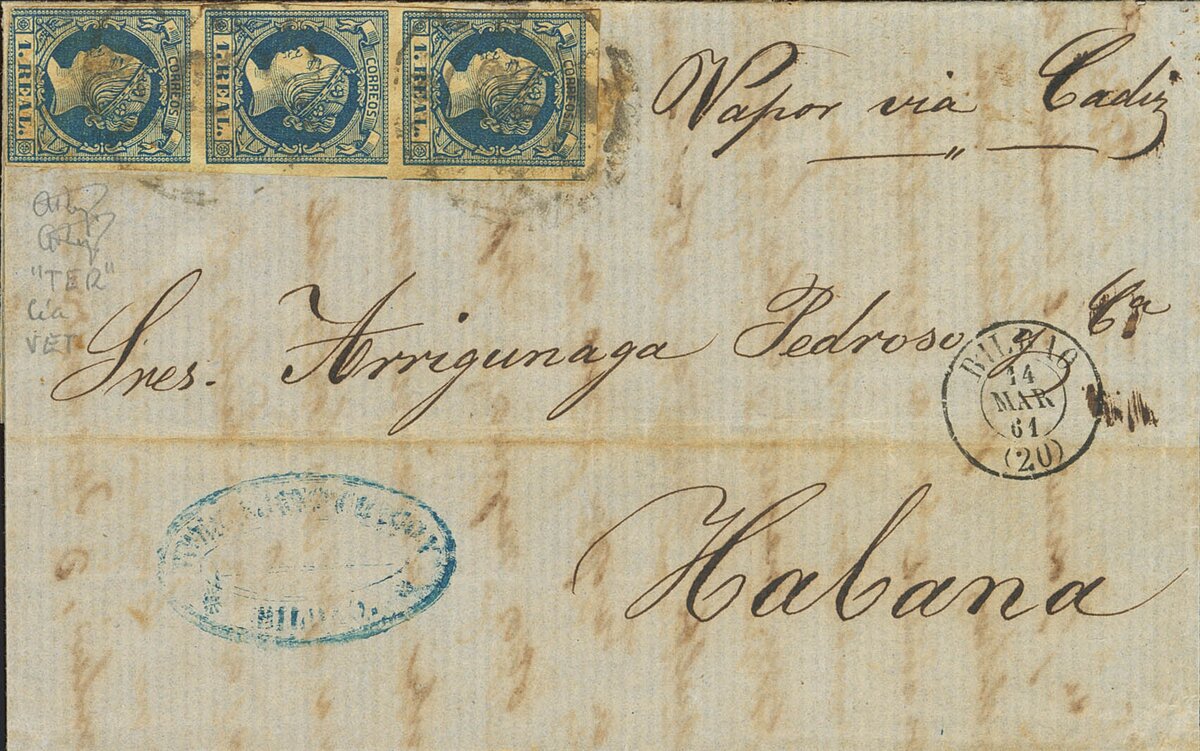 CORREOS
1. REAL.
CORREOS
1. REAL.
CORREOS
1. REAL.
Vapor via Cadiz
"TER"
Cía
VET
Sres. Arrigunaga Pedroso y Cª
BILBAO
14
MAR
61
(20)
BILBAO.
Habana